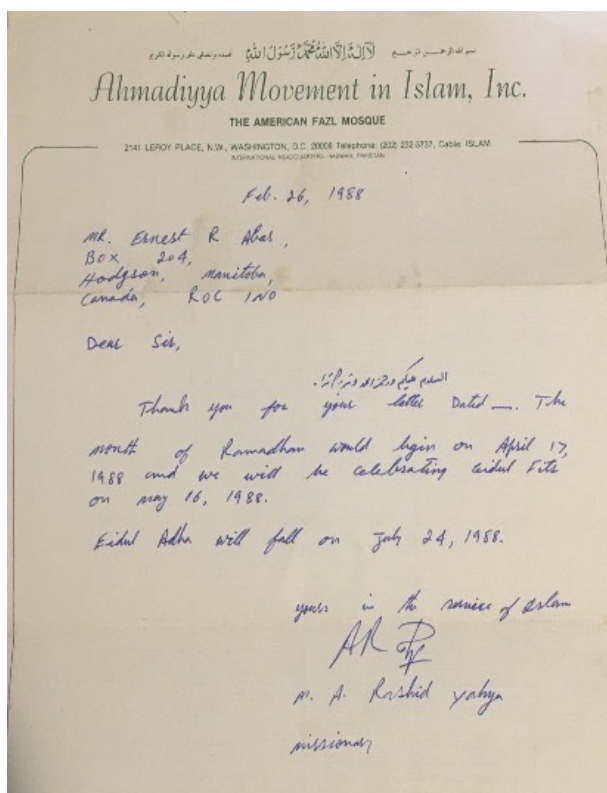 بسم الله الرحمن الرحيم لَا إِلٰهَ إِلَّا اللهُ مُحَمَّدٌ رَّسُولُ اللهِ نحمده ونصلى على رسوله الكريم
Ahmadiyya Movement in Islam, Inc.
THE AMERICAN FAZL MOSQUE
2141 LEROY PLACE, N.W., WASHINGTON, D.C. 20008 Telephone: (202) 232-3737, Cable: ISLAM
INTERNATIONAL HEADQUARTERS: RABWAH, PAKISTAN
Feb. 26, 1988
MR. Ernest R Abas,
BOX 204,
Hodgson, Manitoba,
Canada, ROC 1NO
Dear Sir,
السلام عليكم ورحمة الله وبركاته
Thank you for your letter Dated __. The
month of Ramadhan would begin on April 17,
1988 and we will be celebrating Eidul Fitr
on may 16, 1988.
Eidul Adha will fall on July 24, 1988.
yours in the service of Islam
M. A. Rashid yahya
missionary